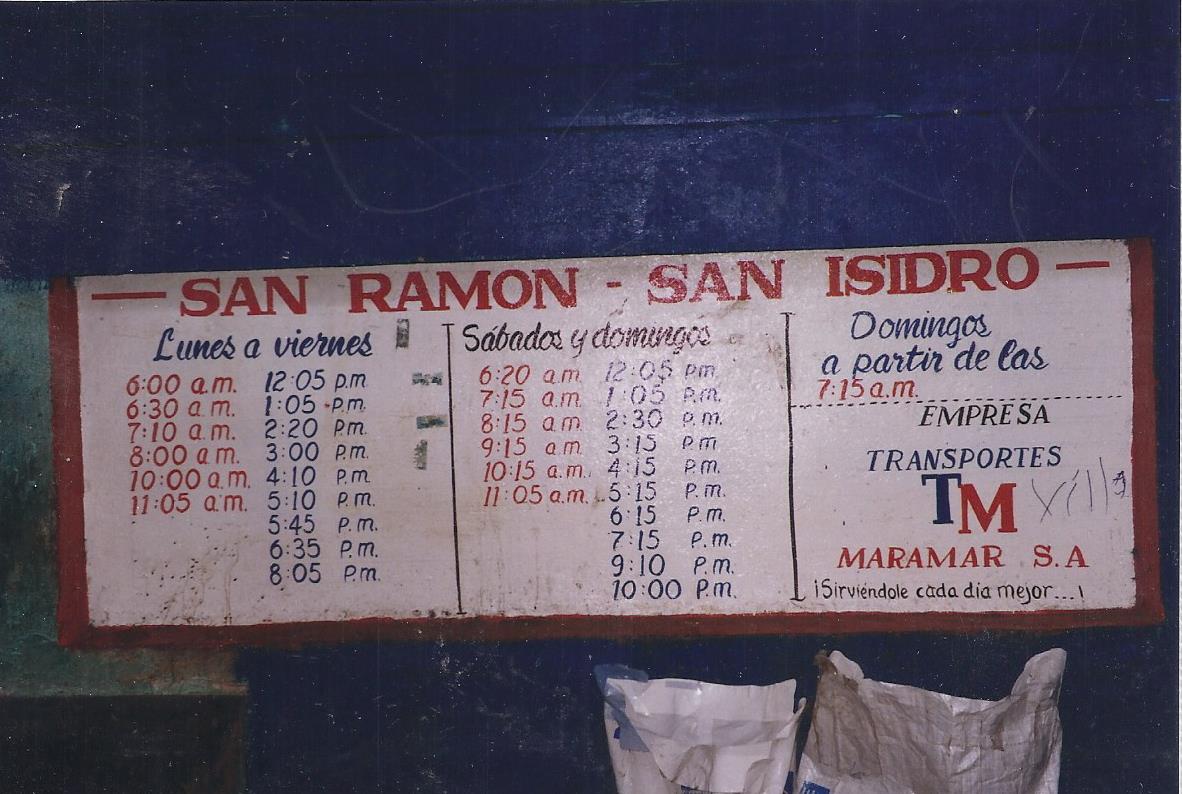 — SAN RAMON - SAN ISIDRO —
Lunes a viernes
6:00 a.m. 12:05 p.m
6:30 a.m. 1:05 p.m.
7:10 a.m. 2:20 p.m.
8:00 a.m. 3:00 p.m.
10:00 a.m. 4:10 p.m.
11:05 a.m. 5:10 p.m.
5:45 p.m.
6:35 p.m.
8:05 p.m.
Sábados y domingos
6:20 a.m. 12:05 p.m.
7:15 a.m. 1:05 p.m.
8:15 a.m. 2:30 p.m.
9:15 a.m 3:15 p.m
10:15 a.m. 4:15 p.m.
11:05 a.m. 5:15 p.m.
6:15 p.m.
7:15 p.m.
9:10 p.m.
10:00 p.m.
Domingos
a partir de las
7:15 a.m.
EMPRESA
TRANSPORTES
TM
MARAMAR S.A
¡Sirviéndole cada dia mejor...!